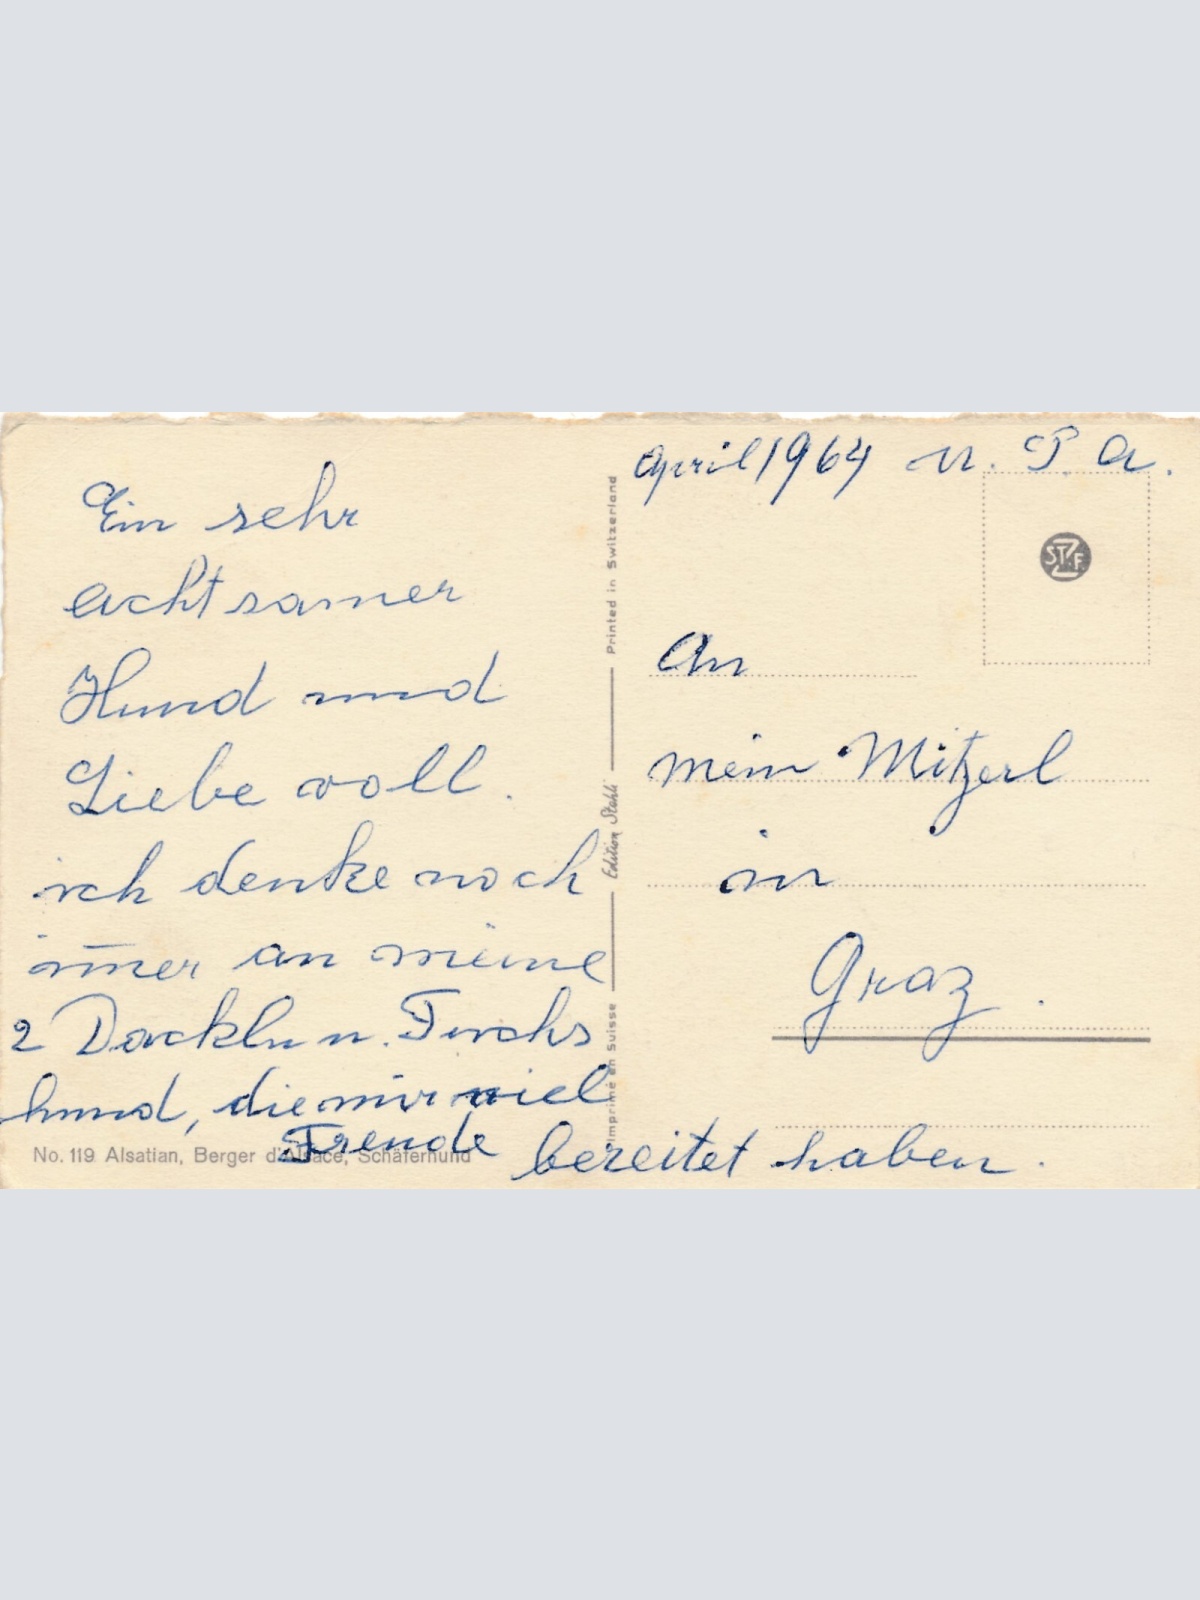 Ein sehr
achtsamer
Hund und
Liebe voll.
ich denke noch
im̄er an meine
2 Dackln u. Fuchs
hund, die mir viel
Freude bereitet haben.
No. 119 Alsatian, Berger d'Alsace, Schäferhund
Imprimé en Suisse
Edition Stehli
Printed in Switzerland
April 1964 u. P. A.
STZF
An
mein Mitzerl
in
Graz.